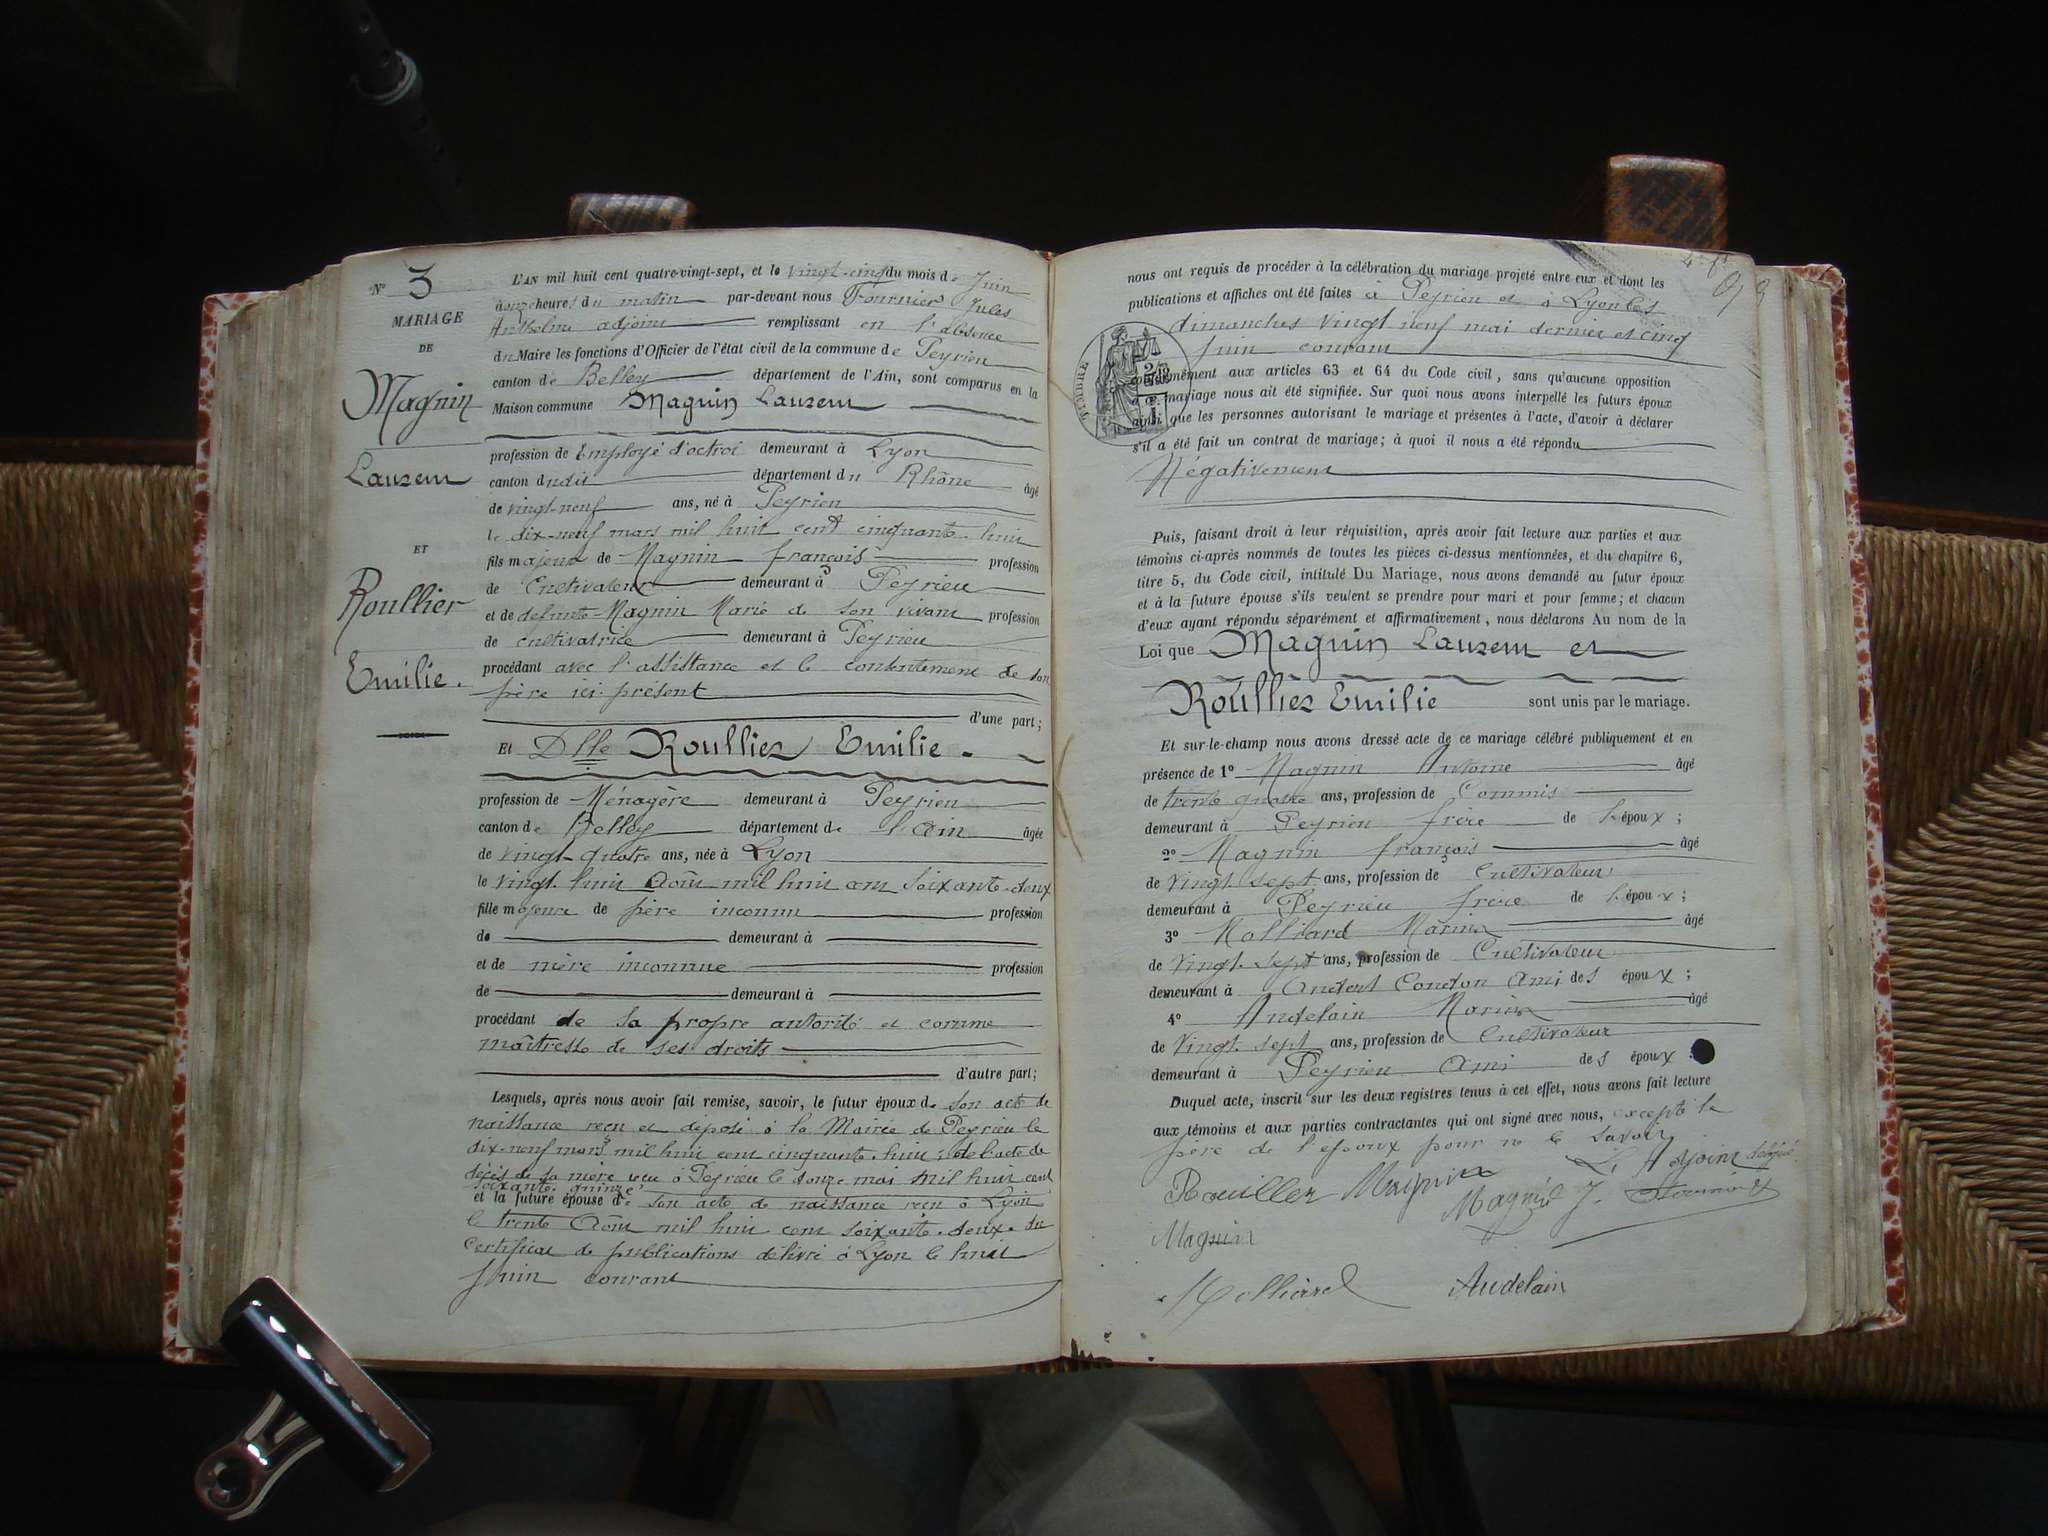 N° 3
MARIAGE
DE
Magnin
Laurent
ET
Roullier
Emilie.
L'AN mil huit cent quatre-vingt-sept, et le vingt-cinq du mois de Juin
à onze heures du matin par-devant nous Fournier Jules
Anthelme adjoint remplissant en l'absence
du Maire les fonctions d'Officier de l'état civil de la commune de Peyrieu
canton de Belley département de l'Ain, sont comparus en la
Maison commune Magnin Laurent
profession de Employé d'octroi demeurant à Lyon
canton dudit département du Rhône âgé
de vingt-neuf ans, né à Peyrieu
le dix-neuf mars mil huit cent cinquante-huit
fils majeur de Magnin françois profession
de Cultivateur demeurant à Peyrieu
et de defunte Magnin Marie de son vivant profession
de cultivatrice demeurant à Peyrieu
procédant avec l'assistance et le consentement de son
père ici présent
d'une part;
Et Dlle Roullier Emilie.
profession de Ménagère demeurant à Peyrieu
canton de Belley département de l'Ain âgée
de vingt-quatre ans, née à Lyon
le vingt-huit Août mil huit cent soixante-deux
fille majeure de père inconnu profession
de demeurant à
et de mère inconnue profession
de demeurant à
procédant de sa propre autorité et comme
maîtresse de ses droits
d'autre part;
Lesquels, après nous avoir fait remise, savoir, le futur époux de son acte de
naissance reçu et déposé à la Mairie de Peyrieu le
dix-neuf mars mil huit cent cinquante-huit; de l'acte de
décès de sa mère reçu à Peyrieu le douze mai mil huit cent
soixante-quinze
et la future épouse de son acte de naissance reçu à Lyon
le trente Août mil huit cent soixante-deux. du
Certificat de publications délivré à Lyon le huit
Juin courant
nous ont requis de procéder à la célébration du mariage projeté entre eux et dont les
publications et affiches ont été faites à Peyrieu et à Lyon les
dimanches vingt neuf mai dernier et cinq
Juin courant
TIMBRE
conformément aux articles 63 et 64 du Code civil, sans qu'aucune opposition
à ce mariage nous ait été signifiée. Sur quoi nous avons interpellé les futurs époux
ainsi que les personnes autorisant le mariage et présentes à l'acte, d'avoir à déclarer
s'il a été fait un contrat de mariage; à quoi il nous a été répondu
Négativement
Puis, faisant droit à leur réquisition, après avoir fait lecture aux parties et aux
témoins ci-après nommés de toutes les pièces ci-dessus mentionnées, et du chapitre 6,
titre 5, du Code civil, intitulé Du Mariage, nous avons demandé au futur époux
et à la future épouse s'ils veulent se prendre pour mari et pour femme; et chacun
d'eux ayant répondu séparément et affirmativement, nous déclarons Au nom de la
Loi que Magnin Laurent et
Roullier Emilie sont unis par le mariage.
Et sur-le-champ nous avons dressé acte de ce mariage célébré publiquement et en
présence de 1° Magnin Antoine âgé
de trente quatre ans, profession de Commis
demeurant à Peyrieu frère de l'époux;
2° Magnin françois âgé
de Vingt-sept ans, profession de Cultivateur
demeurant à Peyrieu frère de l'époux;
3° Molliard Marin âgé
de Vingt-sept ans, profession de Cultivateur
demeurant à Andert Condon Ami des époux;
4° Audelain Marin âgé
de Vingt-sept ans, profession de Cultivateur
demeurant à Peyrieu Ami des époux
Duquel acte, inscrit sur les deux registres tenus à cet effet, nous avons fait lecture
aux témoins et aux parties contractantes qui ont signé avec nous, excepté le
père de l'époux pour ne le savoir
L'Adjoint délégué.
Rouiller Magnin
Magnin J. Fournier
Magnin
Molliard Audelain